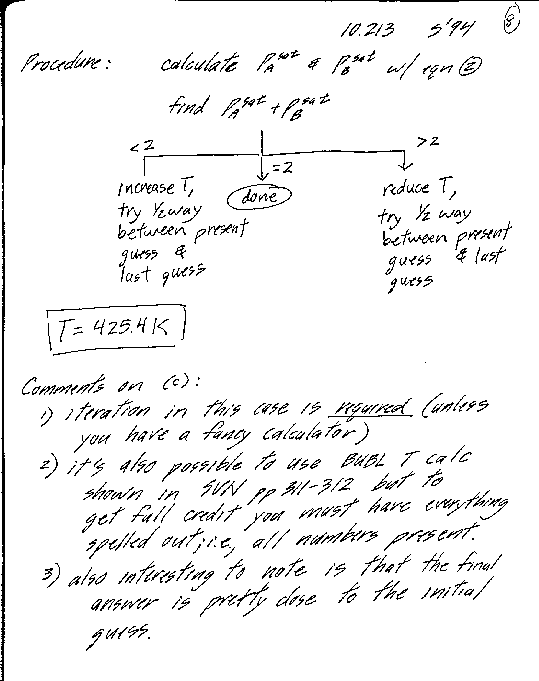 10.213 S'94 8
Procedure: calculate P_A^sat & P_B^sat w/ eqn ②
find P_A^sat + P_B^sat
<2
=2
>2
increase T,
try 1/2 way
between present
guess &
last guess
done
reduce T,
try 1/2 way
between present
guess & last
guess
T = 425.4 K
Comments on (c):
1) iteration in this case is required (unless
you have a fancy calculator)
2) it's also possible to use BUBL T calc
shown in SVN pp 311-312 but to
get full credit you must have everything
spelled out, i.e., all numbers present.
3) also interesting to note is that the final
answer is pretty close to the initial
guess.